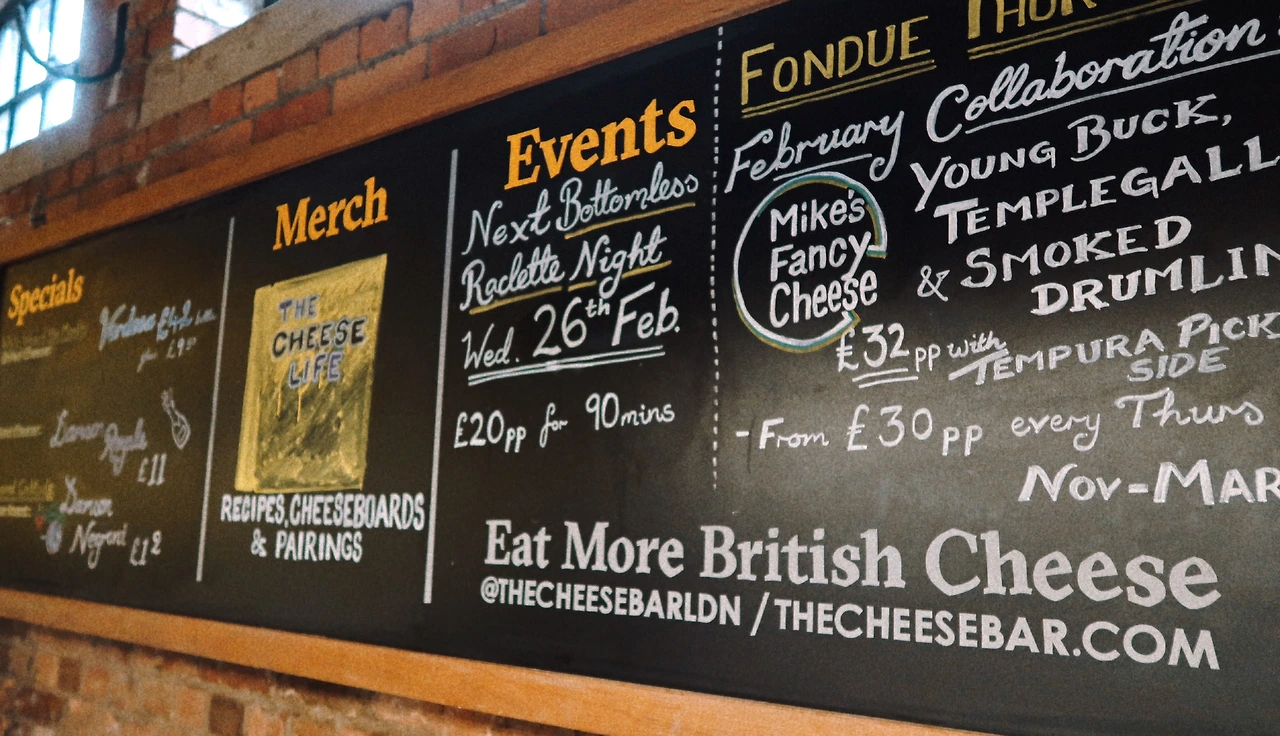 Specials
£11
£12
Merch
THE
CHEESE
LIFE
RECIPES, CHEESEBOARDS
& PAIRINGS
Events
Next Bottomless
Raclette Night
Wed. 26th Feb.
£20pp for 90mins
FONDUE
February Collaboration
Mike's
Fancy
Cheese
YOUNG BUCK,
TEMPLEGALL
& SMOKED
DRUMLIN
£32pp with
TEMPURA PICK
SIDE
- From £30pp every Thurs
Nov-MAR
Eat More British Cheese
@THECHEESEBARLDN / THECHEESEBAR.COM